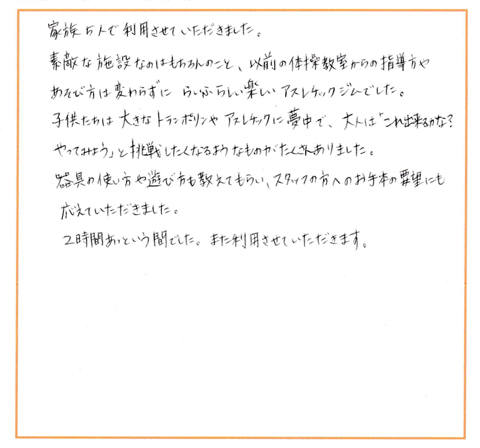 家族5人で利用させていただきました。
素敵な施設なのはもちろんのこと、以前の体操教室からの指導方や
あそび方は変わらずに らいふらしい楽しい アスレチックジムでした。
子供たちは大きなトランポリンや アスレチックに夢中で、大人は「これ出来るかな?
やってみよう」と挑戦したくなるようなものがたくさんありました。
器具の使い方や遊び方も教えてもらい、スタッフの方へのお手本の要望にも
応えていただきました。
2時間あっという間でした。また利用させていただきます。